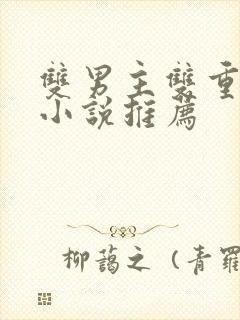 雙男主雙重
小說推薦
柳藹之（青羅